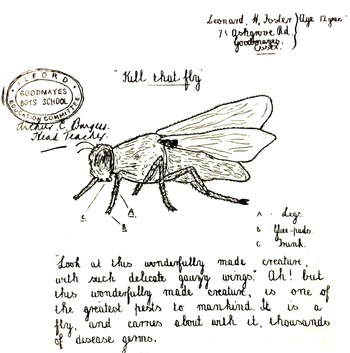 Leonard H. Foster } Age 12 years
73 Ashgrove Rd.
Goodmayes.
Essex.
"Kill that fly"
ILFORD
EDUCATION COMMITTEE
GOODMAYES
BOYS SCHOOL
C. Burgess.
Head Teacher.
A
B
C
A - Legs.
B Glue-pads.
C Trunk.
"Look at this wonderfully made creature,
with such delicate gauzy wings." Ah! but
this wonderfully made creature, is one of
the greatest pests to mankind. It is a
fly, and carries about with it, thousands
of disease germs.